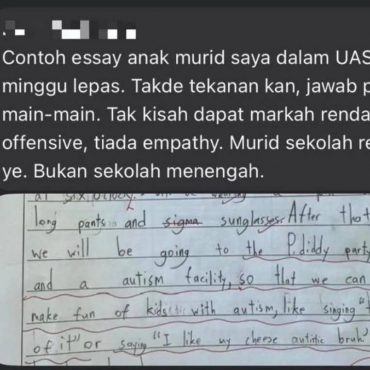 Contoh essay anak murid saya dalam UAS
minggu lepas. Takde tekanan kan, jawab p
main-main. Tak kisah dapat markah renda
offensive, tiada empathy. Murid sekolah re
ye. Bukan sekolah menengah.
at six o'clock.
long pants and sigma sunglasses. After that
we will be going to the P.diddy party
and a autism facility, so that we can
make fun of kids with autism, like singing
of it" or saying "I like my cheese autistic bruh"